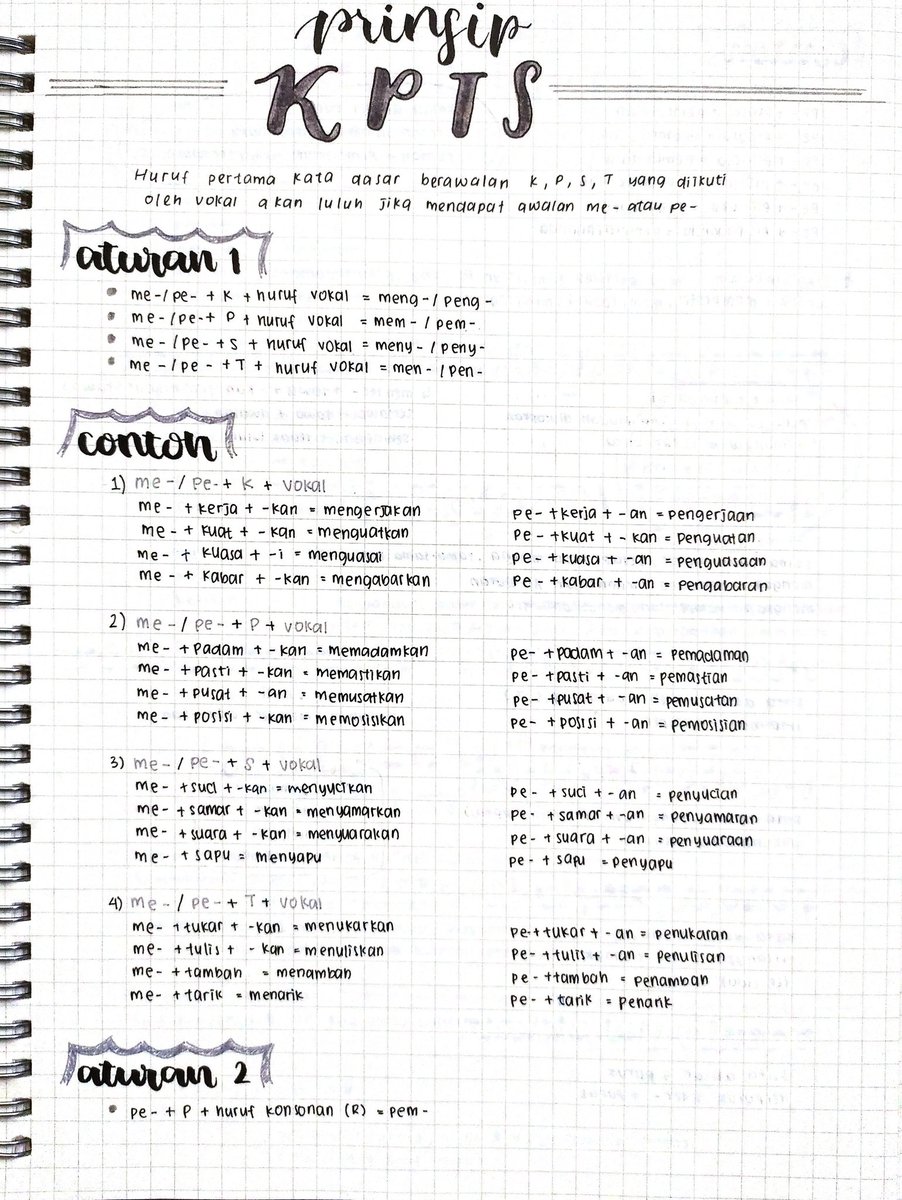 prinsip
KPTS
Huruf pertama kata dasar berawalan K, P, S, T yang diikuti
oleh vokal akan luluh jika mendapat awalan me- atau pe-
aturan 1
• me-/pe- + K + huruf vokal = meng-/peng-
• me-/pe- + P + huruf vokal = mem-/pem-
• me-/pe- + S + huruf vokal = meny-/peny-
• me-/pe- + T + huruf vokal = men-/pen-
contoh
1) me-/pe- + K + vokal
me- + kerja + -kan = mengerjakan
me- + kuat + -kan = menguatkan
me- + kuasa + -i = menguasai
me- + kabar + -kan = mengabarkan
pe- + kerja + -an = pengerjaan
pe- + kuat + -kan = penguatan
pe- + kuasa + -an = penguasaan
pe- + kabar + -an = pengabaran
2) me-/pe- + P + vokal
me- + padam + -kan = memadamkan
me- + pasti + -kan = memastikan
me- + pusat + -an = memusatkan
me- + posisi + -kan = memosisikan
pe- + padam + -an = pemadaman
pe- + pasti + -an = pemastian
pe- + pusat + -an = pemusatan
pe- + posisi + -an = pemosisian
3) me-/pe- + S + vokal
me- + suci + -kan = menyucikan
me- + samar + -kan = menyamarkan
me- + suara + -kan = menyuarakan
me- + sapu = menyapu
pe- + suci + -an = penyucian
pe- + samar + -an = penyamaran
pe- + suara + -an = penyuaraan
pe- + sapu = penyapu
4) me-/pe- + T + vokal
me- + tukar + -kan = menukarkan
me- + tulis + -kan = menuliskan
me- + tambah = menambah
me- + tarik = menarik
pe- + tukar + -an = penukaran
pe- + tulis + -an = penulisan
pe- + tambah = penambah
pe- + tarik = penarik
aturan 2
• pe- + P + huruf konsonan (R) = pem-